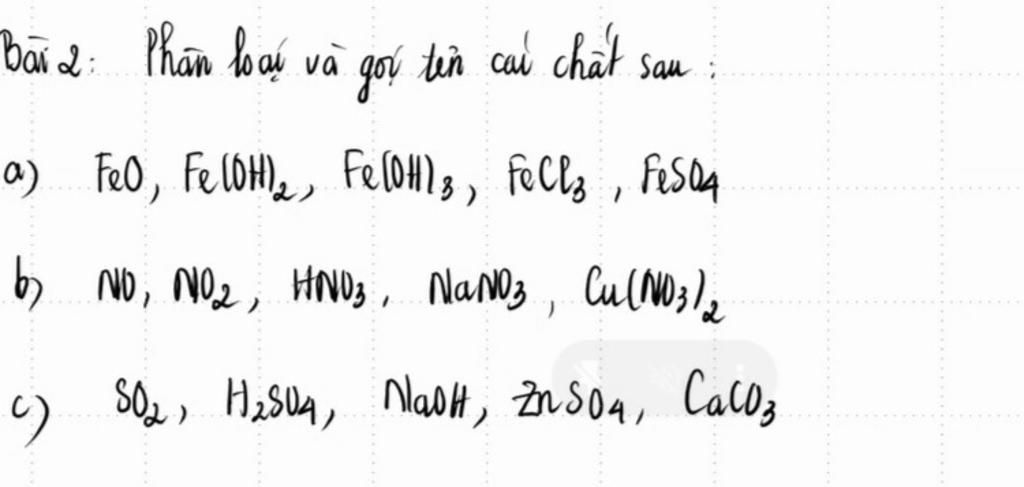 Bài 2: Phân loại và gọi tên các chất sau:
a) FeO, Fe(OH)₂, Fe(OH)₃, FeCl₃, FeSO₄
b) NO, NO₂, HNO₃, NaNO₃, Cu(NO₃)₂
c) SO₂, H₂SO₄, NaOH, ZnSO₄, CaCO₃